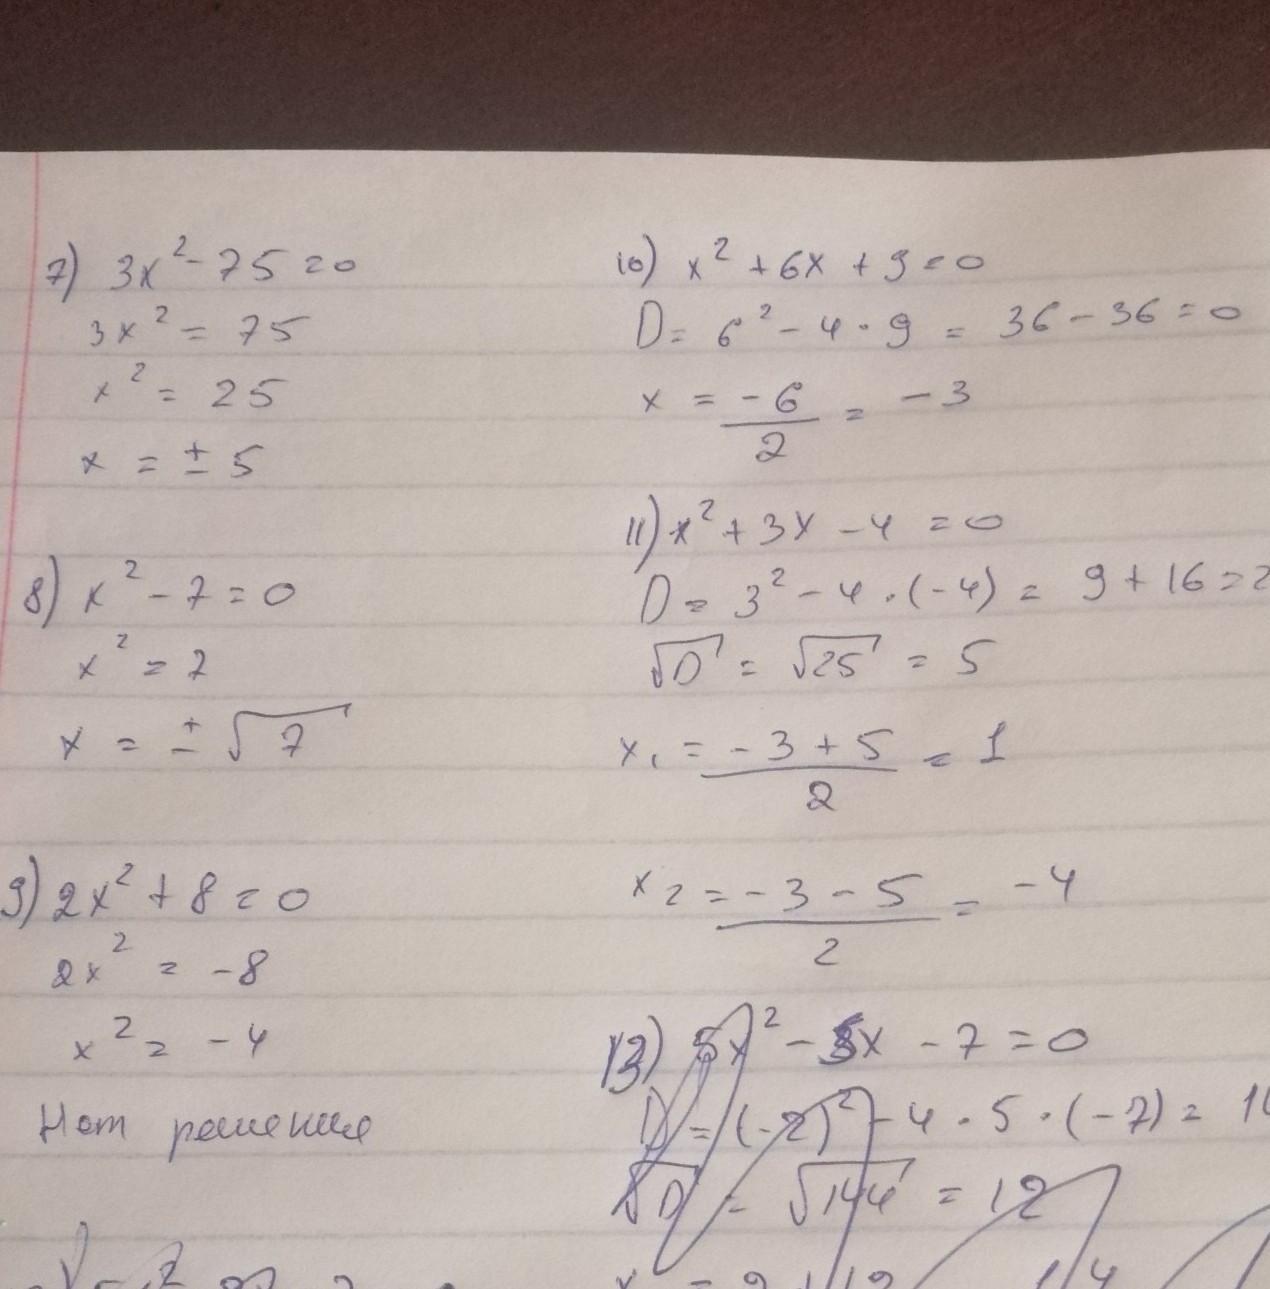 7) 3x² - 75 = 0
3x² = 75
x² = 25
x = ± 5
8) x² - 7 = 0
x² = 7
x = ± √7
9) 2x² + 8 = 0
2x² = -8
x² = -4
Нет решения
10) x² + 6x + 9 = 0
D = 6² - 4 · 9 = 36 - 36 = 0
x = -6/2 = -3
11) x² + 3x - 4 = 0
D = 3² - 4 · (-4) = 9 + 16 = 2
√D = √25 = 5
x₁ = -3 + 5/2 = 1
x₂ = -3 - 5/2 = -4
13) 5x² - x - 7 = 0
D = (-2)² - 4 · 5 · (-7) = 1
√D = √144 = 12